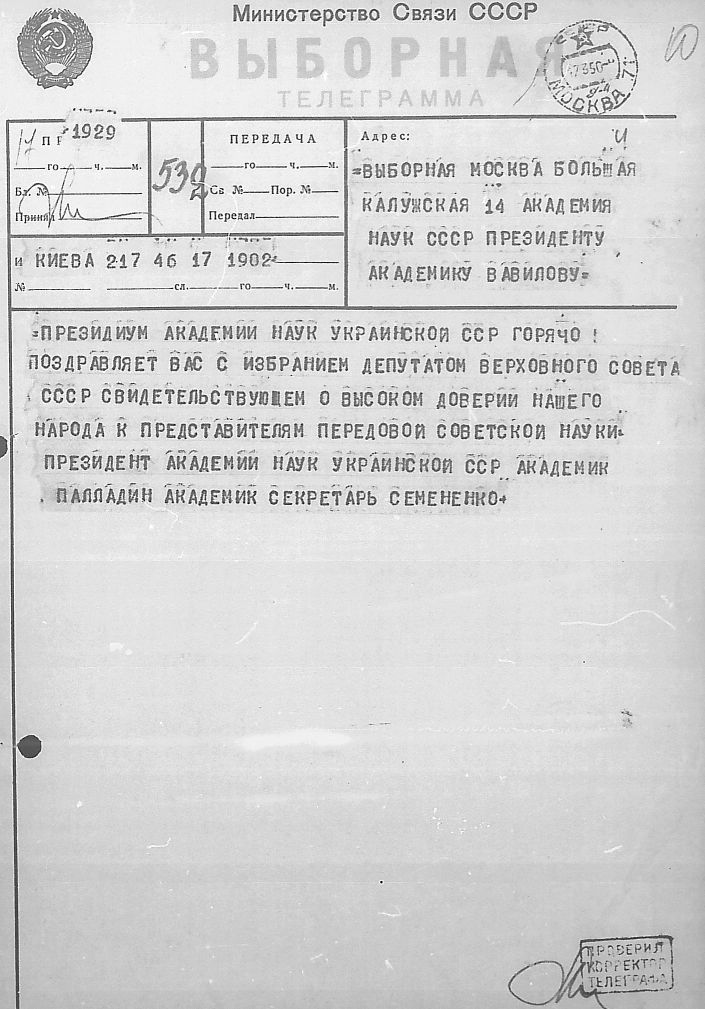 Министерство Связи СССР
ВЫБОРНАЯ
ТЕЛЕГРАММА
СССР
МОСКВА 71
10
1929
го ч. м.
Бл. №
Принял
530
ПЕРЕДАЧА
го ч. м.
Св № Пор. №
Передал
Адрес:
=ВЫБОРНАЯ МОСКВА БОЛЬШАЯ
КАЛУЖСКАЯ 14 АКАДЕМИЯ
НАУК СССР ПРЕЗИДЕНТУ
АКАДЕМИКУ ВАВИЛОВУ=
И КИЕВА 217 46 17 1902
№ сл. го ч. м.
=ПРЕЗИДИУМ АКАДЕМИИ НАУК УКРАИНСКОЙ ССР ГОРЯЧО !
ПОЗДРАВЛЯЕТ ВАС С ИЗБРАНИЕМ ДЕПУТАТОМ ВЕРХОВНОГО СОВЕТА
СССР СВИДЕТЕЛЬСТВУЮЩЕМ О ВЫСОКОМ ДОВЕРИИ НАШЕГО
НАРОДА К ПРЕДСТАВИТЕЛЯМ ПЕРЕДОВОЙ СОВЕТСКОЙ НАУКИ=
ПРЕЗИДЕНТ АКАДЕМИИ НАУК УКРАИНСКОЙ ССР АКАДЕМИК
ПАЛЛАДИН АКАДЕМИК СЕКРЕТАРЬ СЕМЕНЕНКО+
ПРОВЕРИЛ
КОРРЕКТОР
ТЕЛЕГРАМА